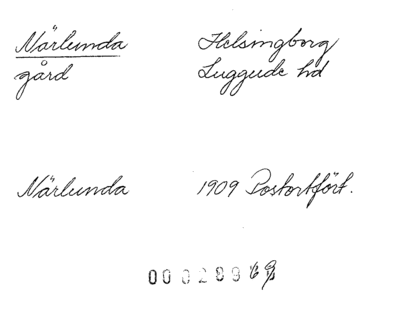 Närlunda Helsingborg
gård Luggude hd
Närlunda 1909 Postortfört.
000289